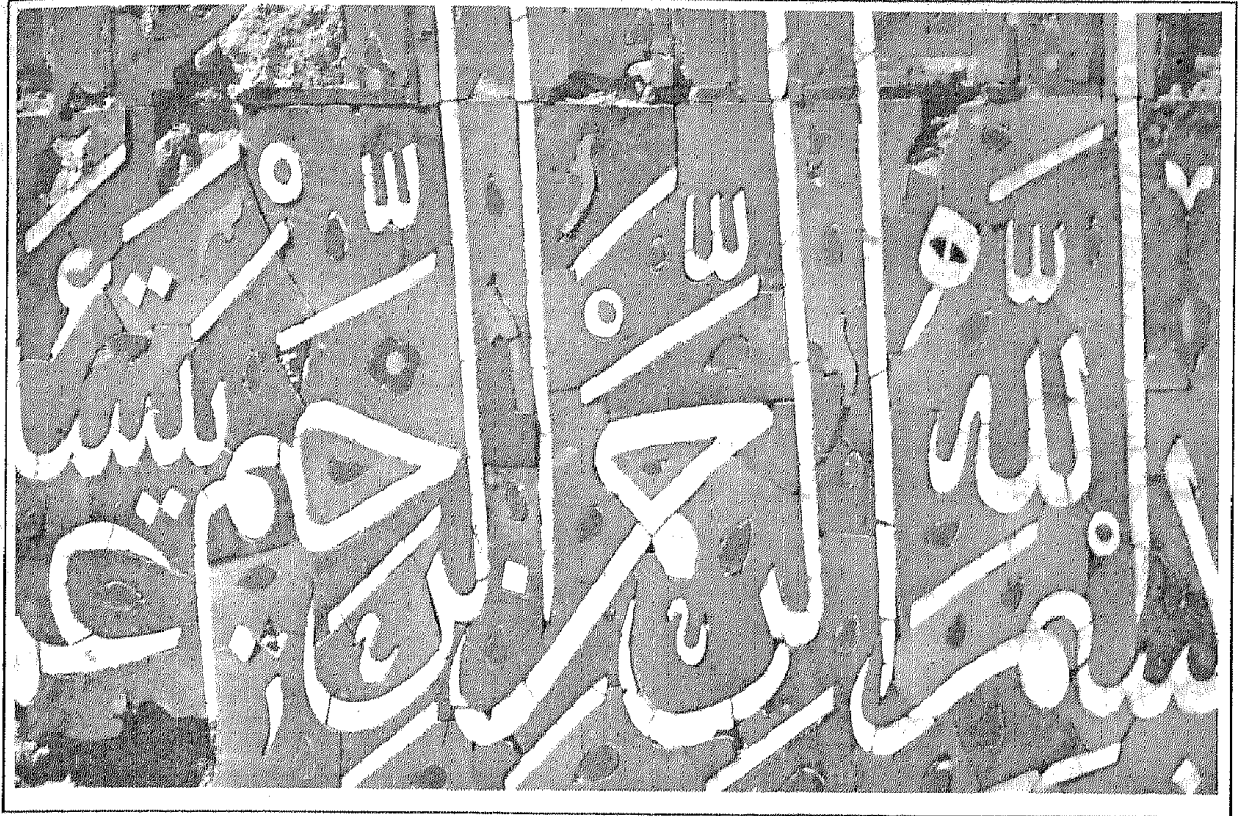 بِسْمِ اللَّهِ الرَّحْمٰنِ الرَّحِيمِ عَمَّ